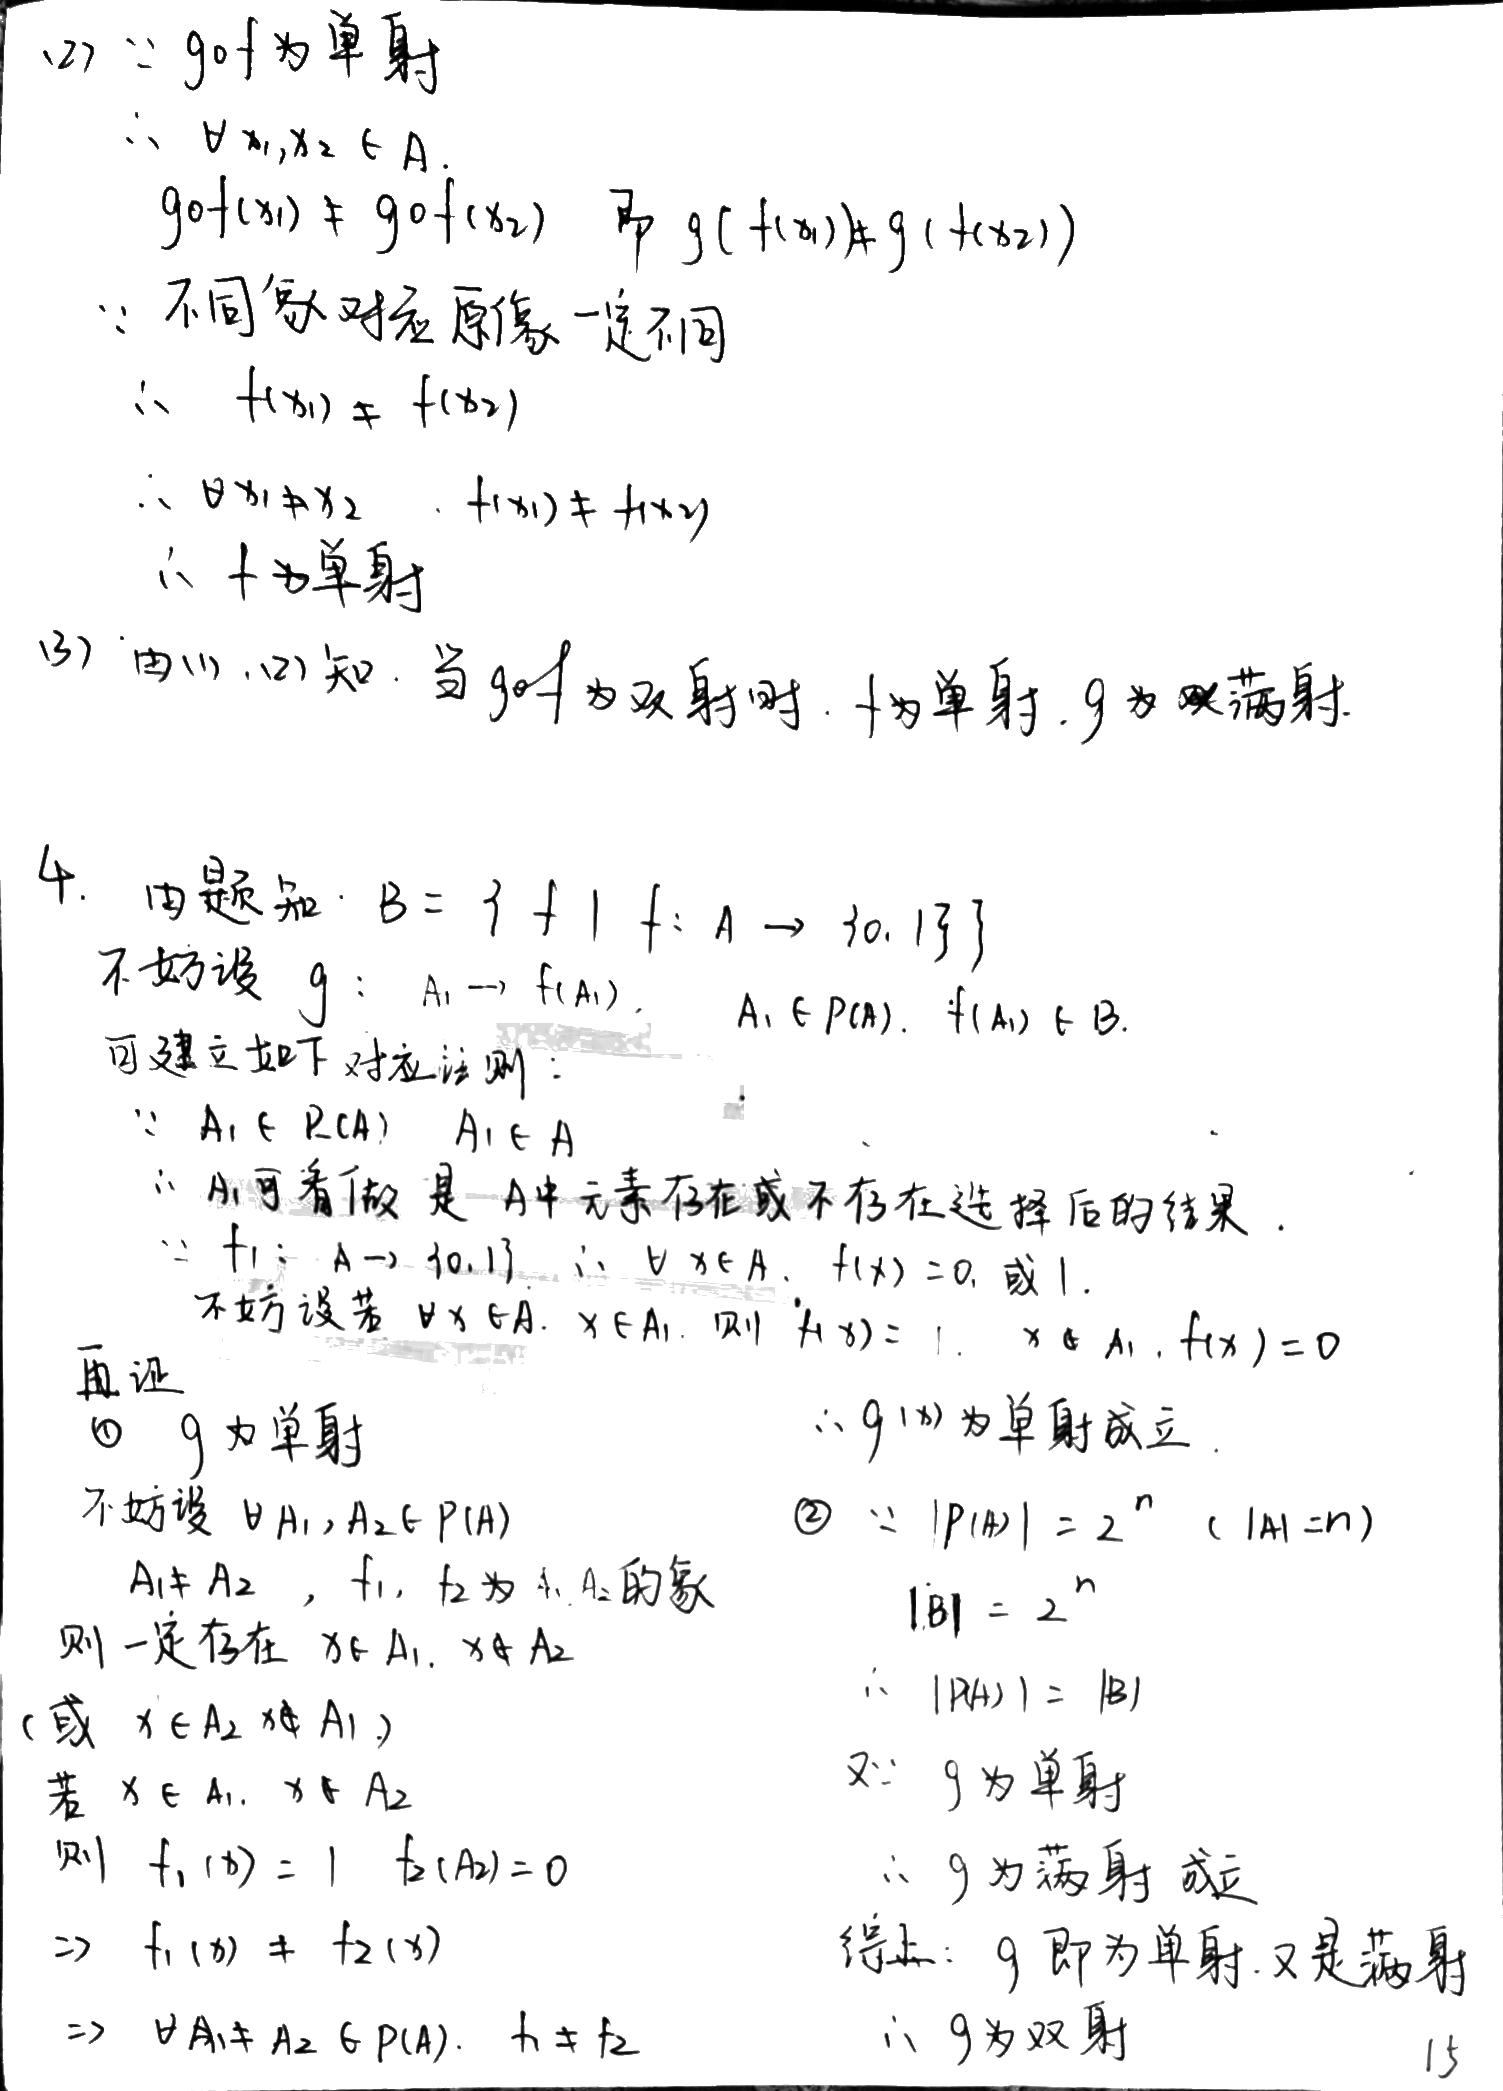 (2) ∵ g∘f为单射
∴ ∀x₁,x₂∈A.
g∘f(x₁)≠g∘f(x₂) 即 g(f(x₁))≠g(f(x₂))
∵ 不同象对应原像一定不同
∴ f(x₁)≠f(x₂)
∴ ∀x₁≠x₂. f(x₁)≠f(x₂)
∴ f为单射
(3) 由(1).(2)知. 当g∘f为双射时. f为单射. g为满射.
4. 由题知. B={f|f: A→{0.1}}
不妨设 g: A₁→f(A₁). A₁∈P(A). f(A₁)∈B.
可建立如下对应法则:
∵ A₁∈P(A) A₁∈A
∴ A₁可看做是A中元素存在或不存在选择后的结果.
∵ f₁: A→{0.1} ∴ ∀x∈A. f(x)=0. 或1.
不妨设若∀x∈A. x∈A₁. 则f(x)=1. x∉A₁. f(x)=0
再证
① g为单射
不妨设∀A₁,A₂∈P(A)
A₁≠A₂, f₁. f₂为A₁.A₂的象
则一定存在 x∈A₁. x∉A₂
(或 x∈A₂ x∉A₁)
若 x∈A₁. x∉A₂
则 f₁(x)=1 f₂(A₂)=0
=> f₁(x)≠f₂(x)
=> ∀A₁≠A₂∈P(A). f₁≠f₂
∴ g(x)为单射成立.
② ∵ |P(A)|=2ⁿ (|A|=n)
|B|=2ⁿ
∴ |P(A)|=|B|
又∵ g为单射
∴ g为满射成立
综上: g即为单射.又是满射
∴ g为双射
15